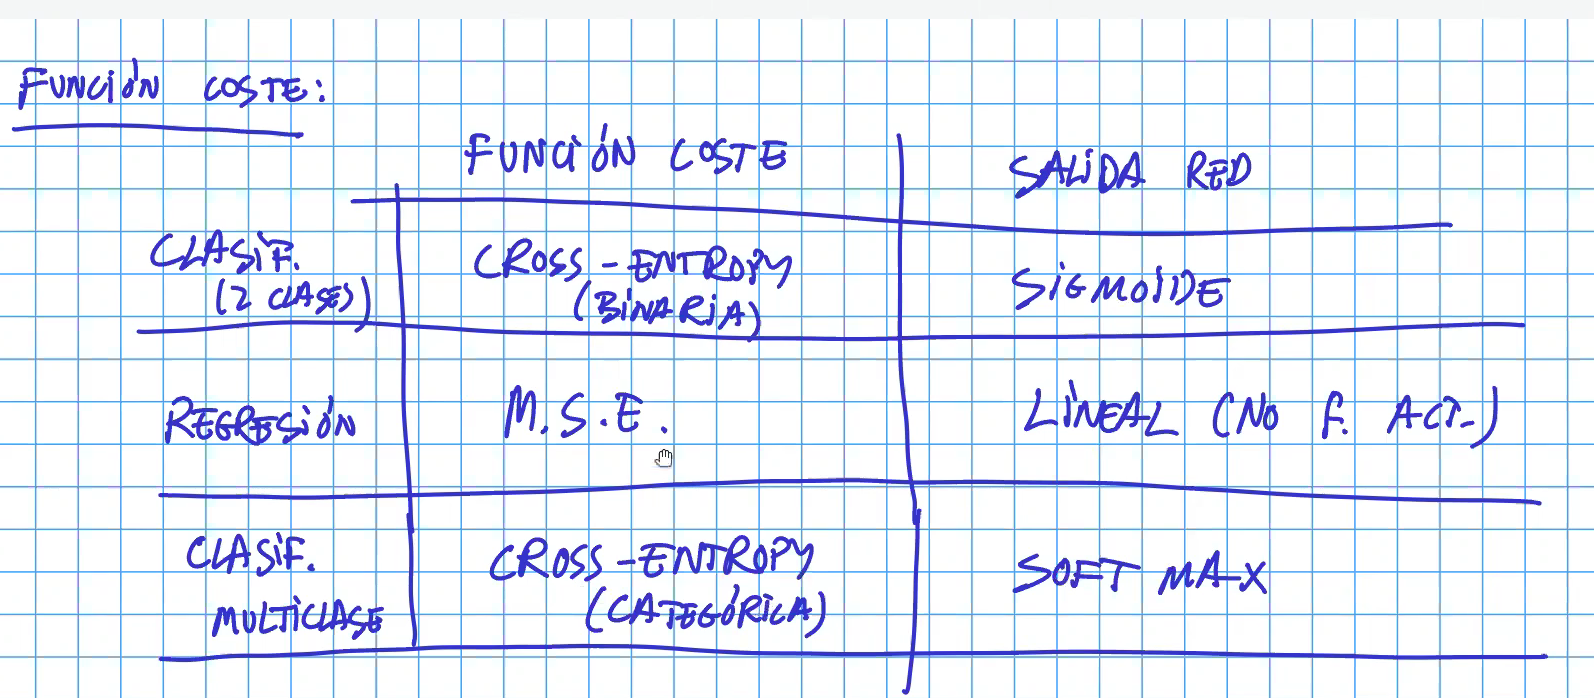 FUNCIÓN COSTE:
FUNCIÓN COSTE
SALIDA RED
CLASIF.
(2 CLASES)
CROSS-ENTROPY
(BINARIA)
SIGMOIDE
REGRESIÓN
M.S.E.
LINEAL (NO F. ACT.)
CLASIF.
MULTICLASE
CROSS-ENTROPY
(CATEGÓRICA)
SOFT MAX